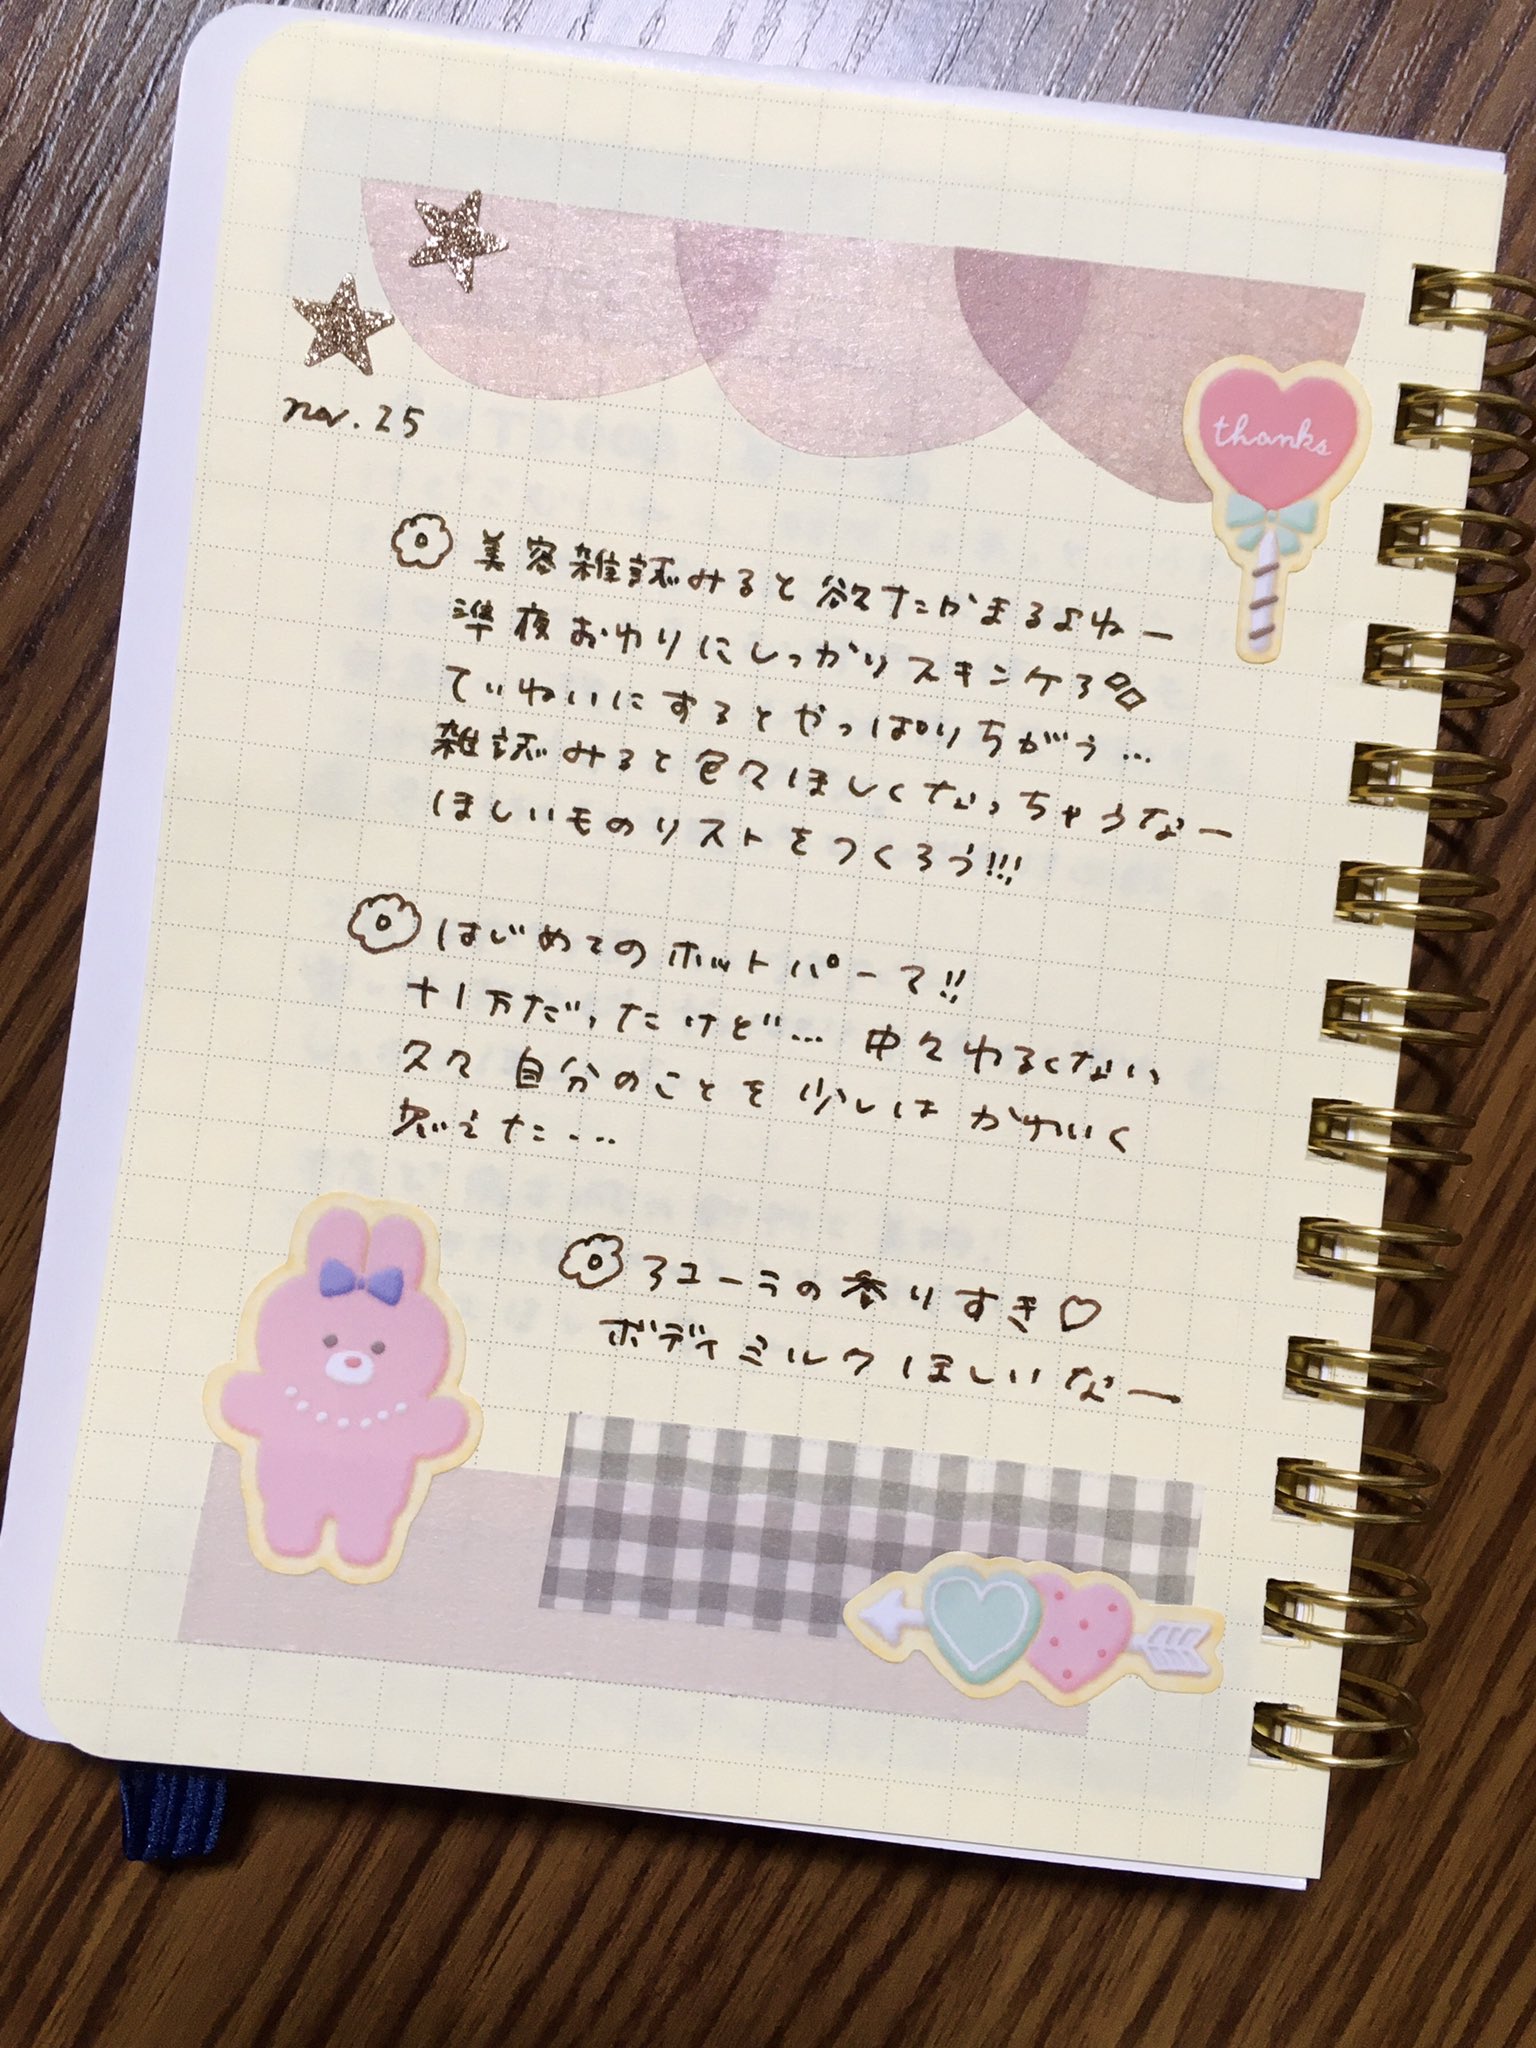 thanks
nov. 25
美容雑誌みると欲たかまるよねー
準夜おわりにしっかりスキンケろ
ていねいにするとやっぱりちがう…
雑誌みると色々ほしくなっちゃうなー
ほしいものリストをつくろう!!!
はじめてのホットパーマ!!
+1万だったけど… 中々わるくない
久々 自分のことを少しは かわいく
思えた…
ろューラの香りすき♡
ボディミルクほしいなー